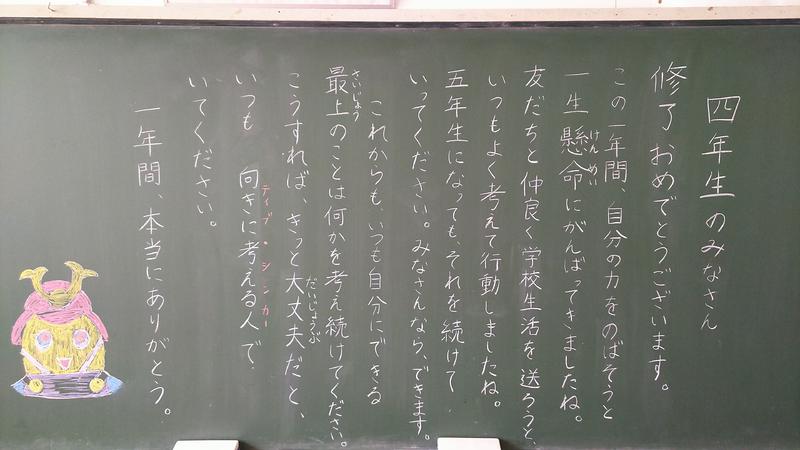 四年生のみなさん
修了おめでとうございます。
この一年間、自分の力をのばそうと
けんめい
一生懸命にがんばってきましたね。
友だちと仲良く学校生活を送ろうと、
いつもよく考えて行動しましたね。
五年生になっても、それを続けて
いってください。みなさんなら、できます。
これからも、いつも自分にできる
さいじょう
最上のことは何かを考え続けてください。
だいじょうぶ
こうすれば、きっと大丈夫だと、
ティブ・シンカー
いつも 向きに考える人で
いてください。
一年間、本当にありがとう。